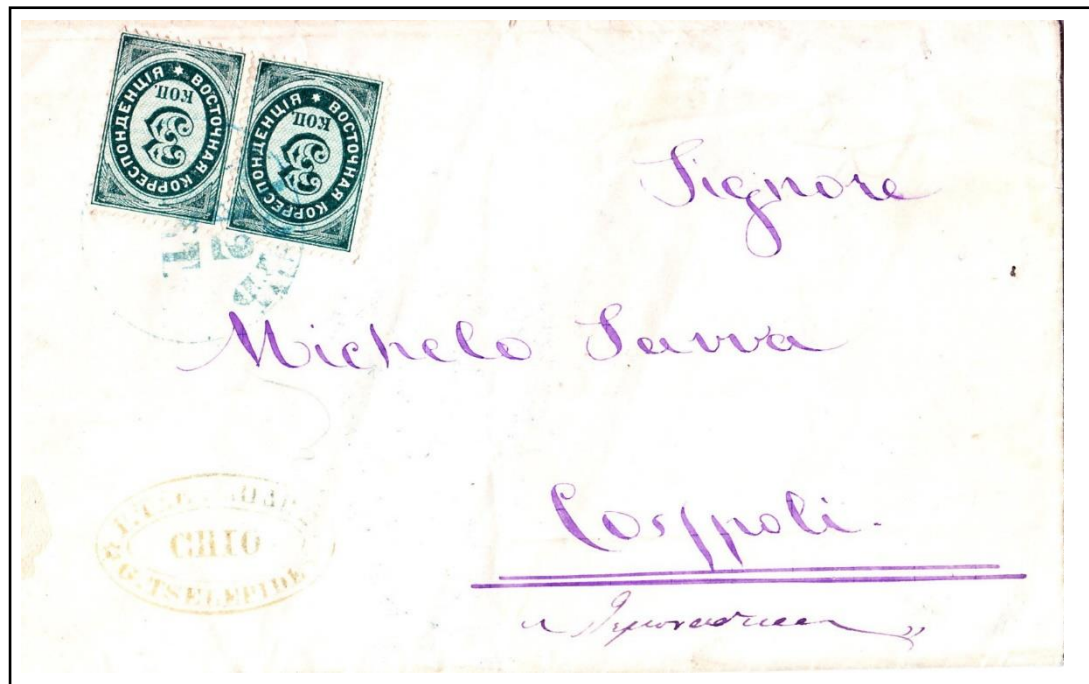 ВОСТОЧНАЯ КОРРЕСПОНДЕНЦІЯ
3
КОП
ВОСТОЧНАЯ КОРРЕСПОНДЕНЦІЯ
3
КОП
Signore
Michele Savva
Cosppoli.
CHIO
G. TSELEPIDE